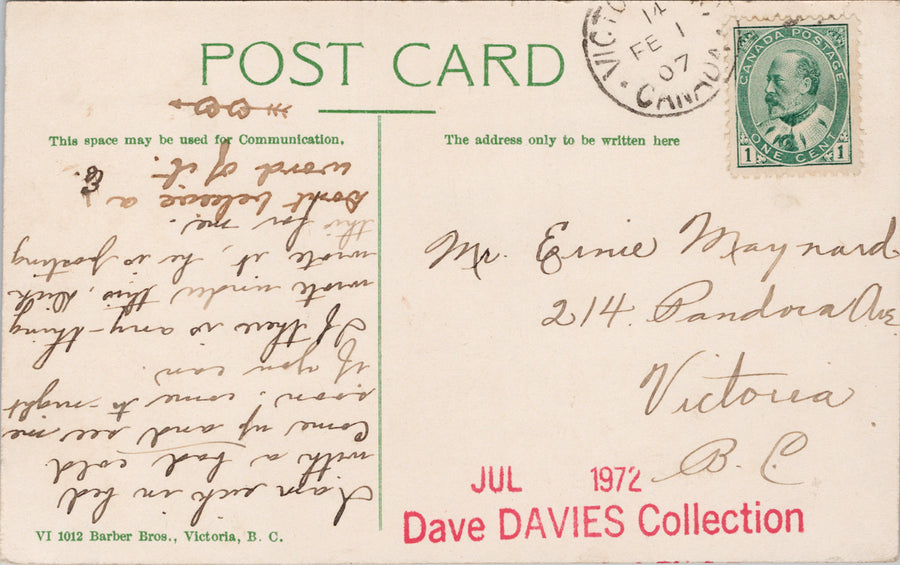 POST CARD
This space may be used for Communication.
The address only to be written here
VICTO
14
FE 1
07
CANADA
CANADA POSTAGE
1 ONE CENT 1
I am sick in bed
with a bad cold
Come up and see me
soon. come to-night
if you can.
If there is any-thing
wrote under this, Dick
wrote it, he is posting
this for me.
Don't beleive a
word of it.
E.
Mr. Ernie Maynard
214 Pandora Ave
Victoria
B. C.
JUL 1972
Dave DAVIES Collection
VI 1012 Barber Bros., Victoria, B. C.